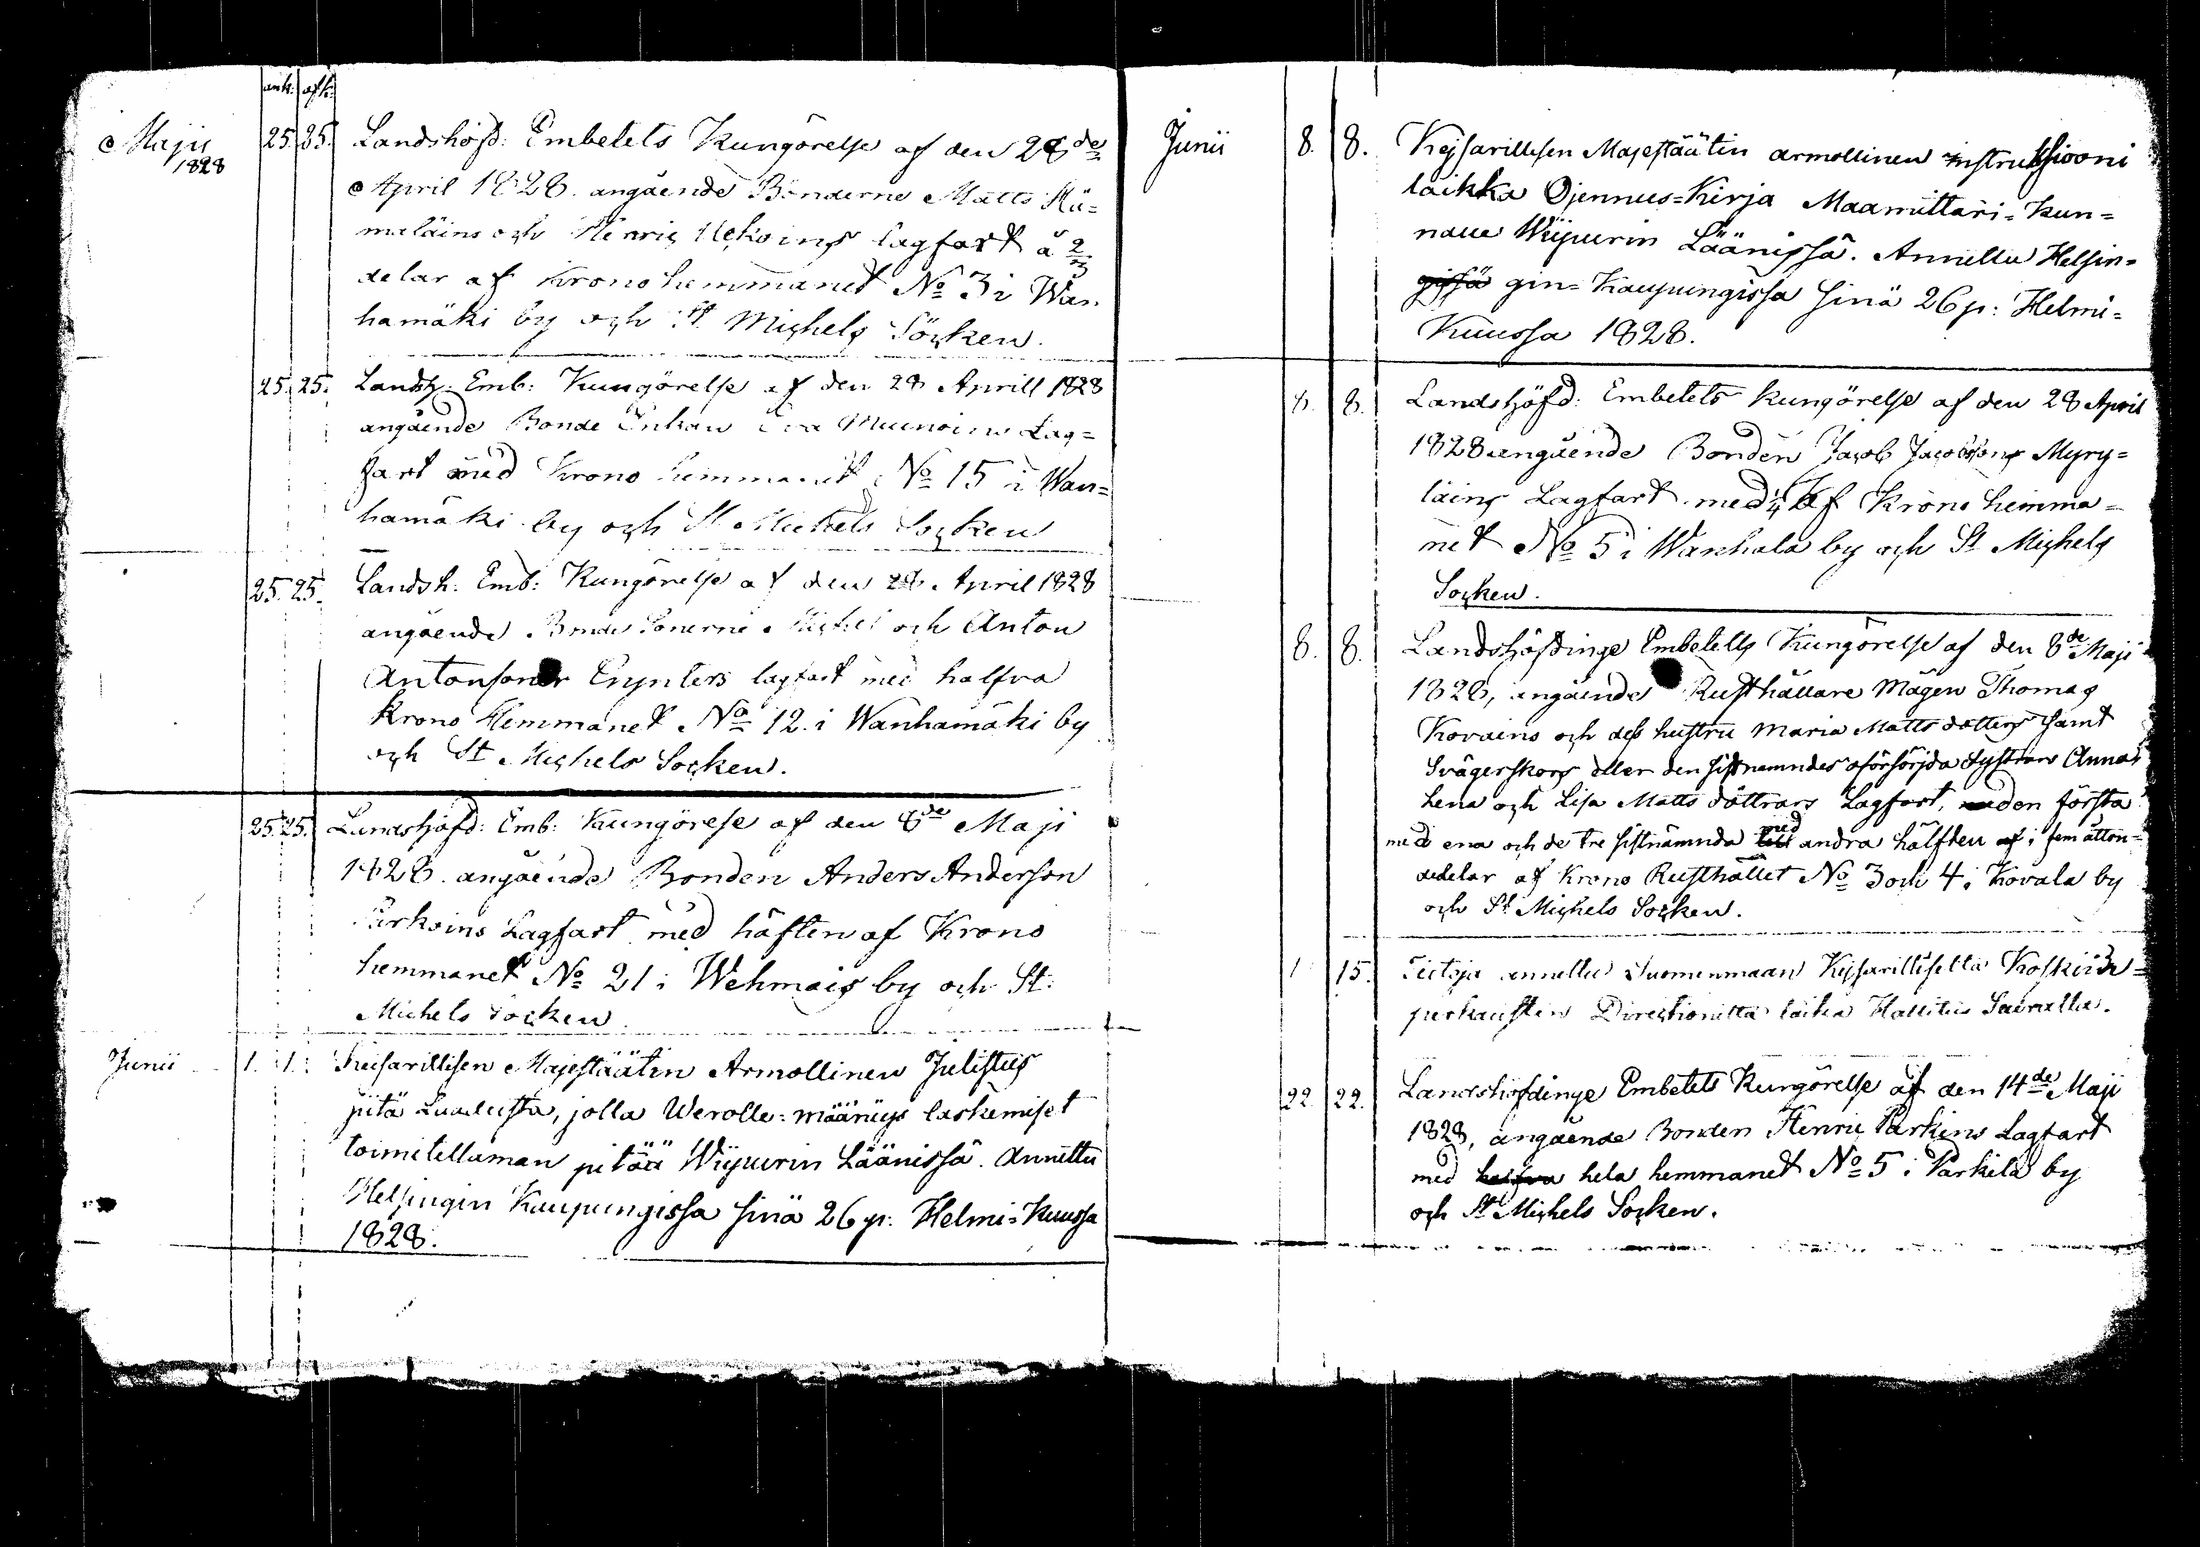 ank: afk:
Maji 1828
25. 25. Landshöfd: Embetets Kungörelse af den 28de
April 1828. angående Bönderne Matts
maläins och Henric Ukoins lagfart å 2/3
delar af Krono hemmanet No 3 i Wan
hamäki by och St Michels Socken.
25. 25. Landsh: Emb: Kungörelse af den 28 Aprill 1828
angående Bonde Enkan Eva Muinoins Lag=
fart med Krono hemmanet No 15 i Wan=
hamäki by och St Michels Socken
25. 25. Landsh. Emb: Kungörelse af den 28. April 1828
angående Bonde Sönerne Michel och Anton
Antonsoner Eynters lagfart med halfva
Krono Hemmanet No 12. i Wanhamäki by
och St Michels Socken.
25. 25. Landshöfd: Emb: Kungörelse af den 8de Maji
1828. angående Bonden Anders Anderson
Lagfart med häften af Krono
hemmanet No 21 i Wehmais by och St:
Michels Socken
Junii 1. 1. Keisarillisen Majestäätin Armollinen Julistus
siitä Luvusta, jolla Werolle=määräys laskemiset
toimitellaman pitää Wijpurin Läänissä. Annettu
Helsingin Kaupungissa sinä 26 p: Helmi=Kuussa
1828.
Junii 8. 8. Kejsarillisen Majestäätin armollinen instruktsiooni
taikka Ojennus=Kirja Maamittari=kun=
nalle Wijpurin Läänissä. Annettu Helsin=
gissä gin=Kaupungissa sinä 26 p: Helmi=
Kuussa 1828.
8. 8. Landshöfd: Embetets kungörelse af den 28 April
1828 angående Bonden Jacob Jacobssons Myry=
läins Lagfart med 1/4 af Krono hemma=
net No 5 i Wanhala by och St Michels
Socken.
8. 8. Landshöfdinge Embetets Kungörelse af den 8de Maji
1828, angående Rusthållare Mågen Thomas
Kovains och dess hustru Maria Matts dotters samt
Svägerskors eller den sistnemndes oförsörjda systrars Annas
Lena och Lisa Matts döttrars Lagfart, den första
med ena och de tre sistnämnda med andra hälften af i fem åtton=
dedelar af Krono Rusthållet No 3 och 4 i Kovala by
och St Michels Socken.
1 15. Tietoja annettu Suomenmaan Kejsarilliselta Koskein=
perkausten Directionilta taika Hallitus Seuralta.
22. 22. Landshöfdinge Embetets Kungörelse af den 14de Maji
1828, angående Bonden Henric Parkins Lagfart
med halfva hela hemmanet No 5 i Parkila by
och St Michels Socken.